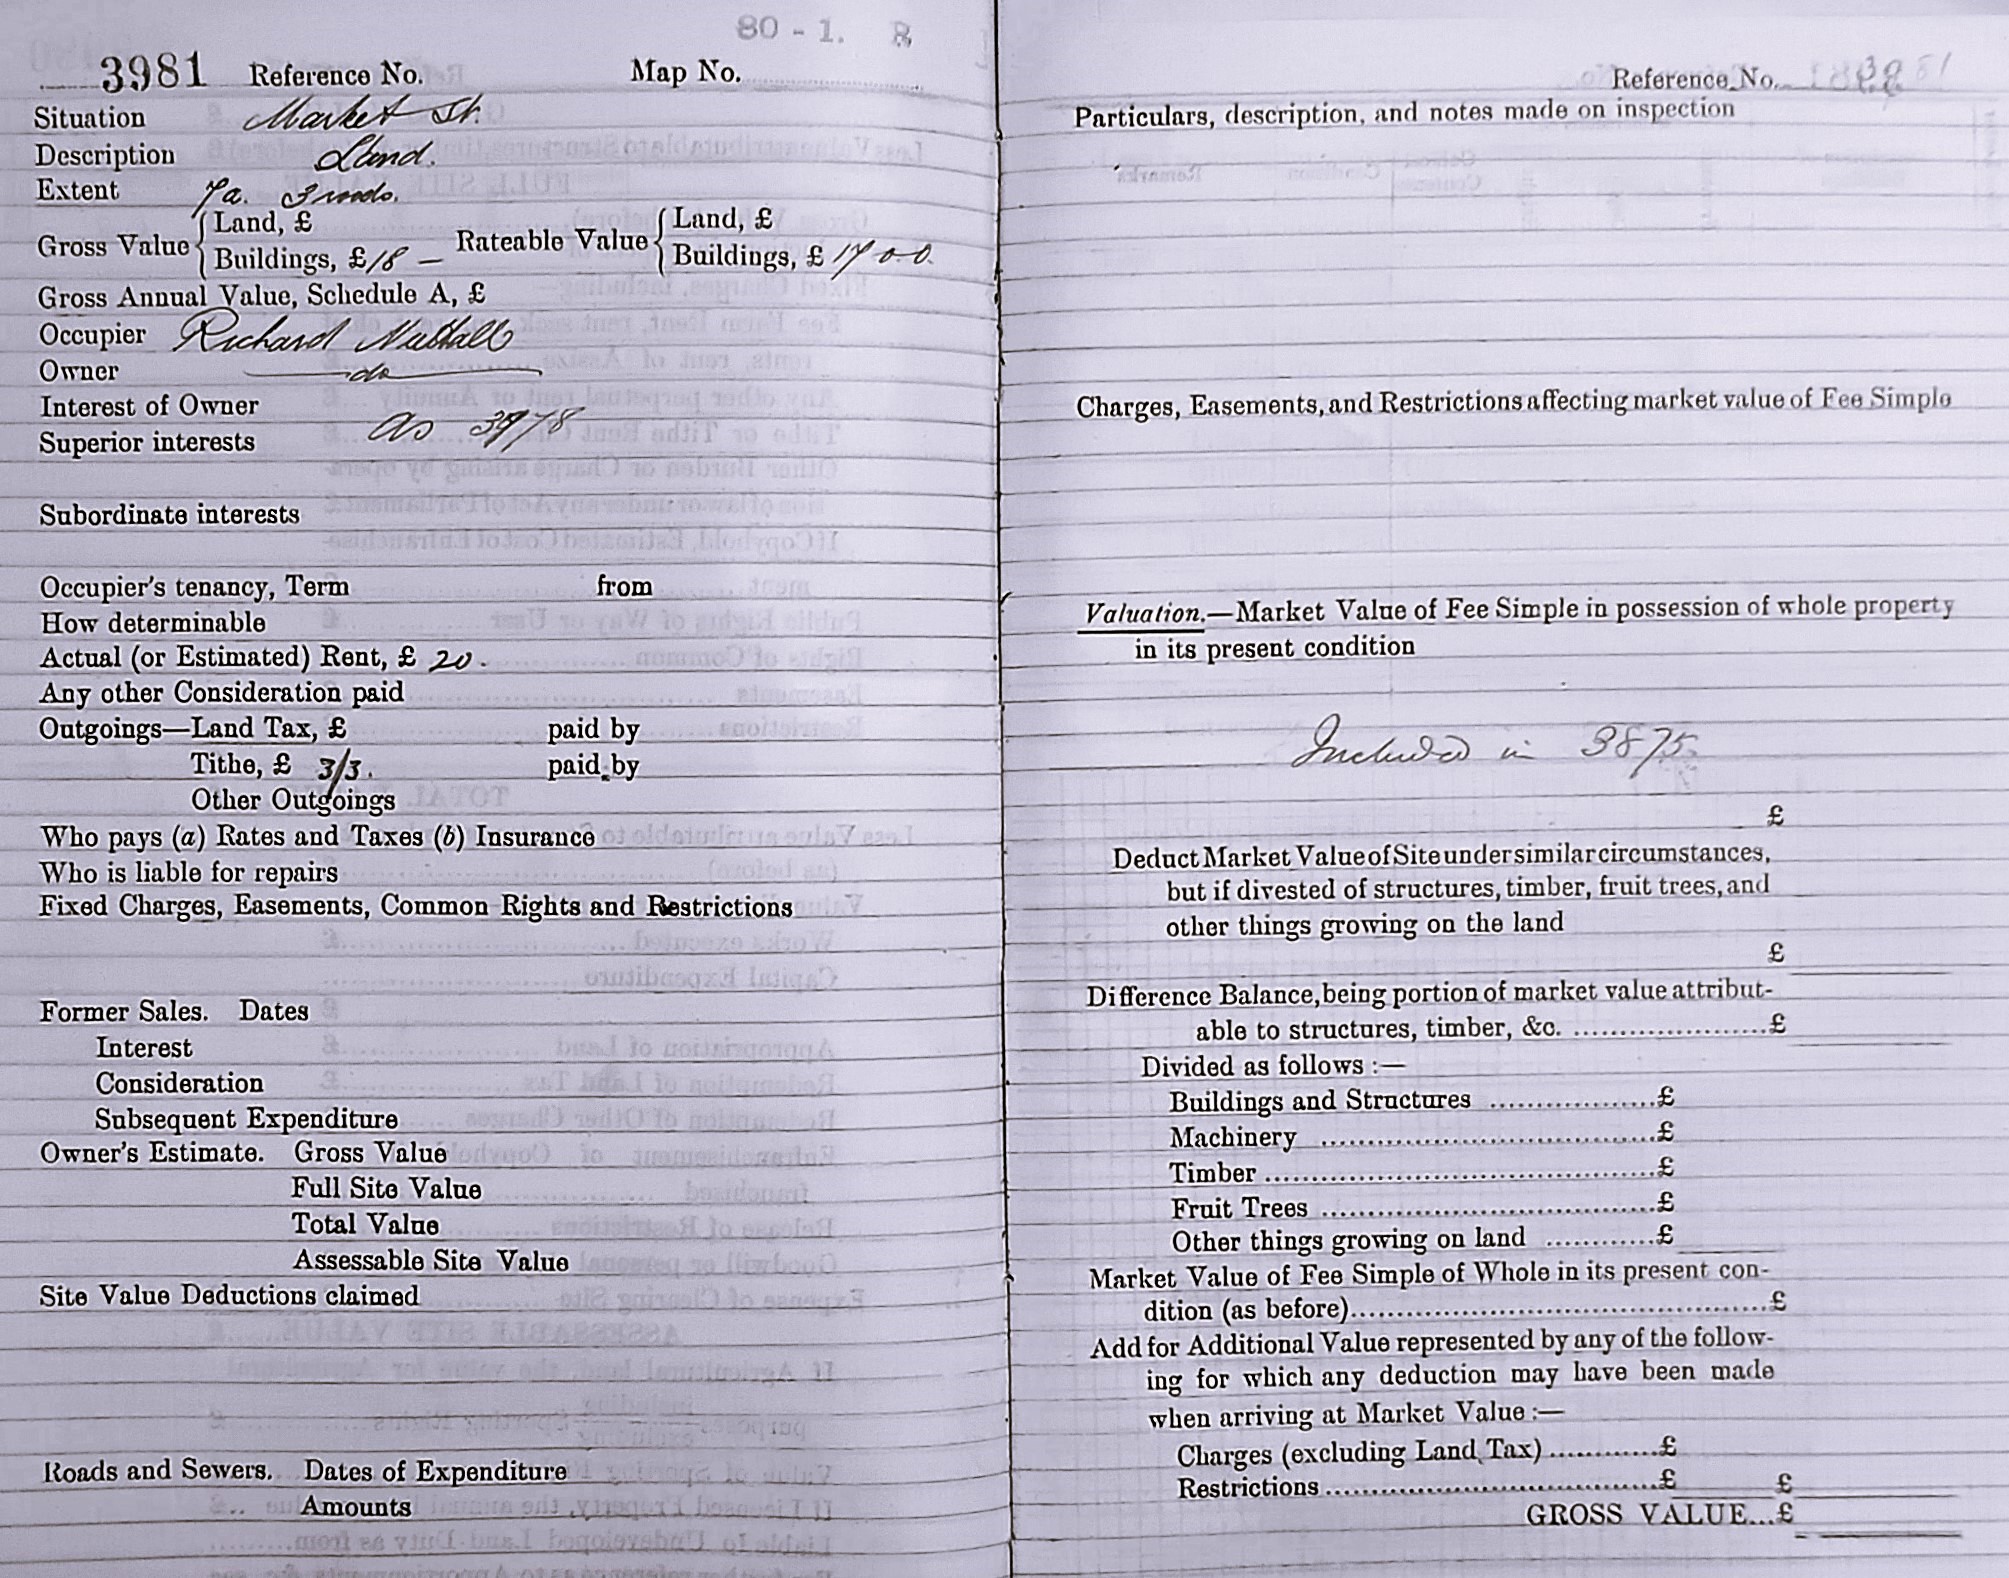 80 - 1. 8
3981 Reference No. Map No.
Situation Market St.
Description Land.
Extent 7a. 3 roods.
Gross Value { Land, £ Rateable Value { Land, £
Buildings, £ 18 — Buildings, £ 17 0 0.
Gross Annual Value, Schedule A, £
Occupier Richard Nuttall
Owner do
Interest of Owner
Superior interests as 3978
Subordinate interests
Occupier's tenancy, Term from
How determinable
Actual (or Estimated) Rent, £ 20.
Any other Consideration paid
Outgoings—Land Tax, £ paid by
Tithe, £ 3/3. paid by
Other Outgoings
Who pays (a) Rates and Taxes (b) Insurance
Who is liable for repairs
Fixed Charges, Easements, Common Rights and Restrictions
Former Sales. Dates
Interest
Consideration
Subsequent Expenditure
Owner's Estimate. Gross Value
Full Site Value
Total Value
Assessable Site Value
Site Value Deductions claimed
Roads and Sewers. Dates of Expenditure
Amounts
Reference No.
Particulars, description, and notes made on inspection
Charges, Easements, and Restrictions affecting market value of Fee Simple
Valuation.—Market Value of Fee Simple in possession of whole property
in its present condition
Included in 3875
£
Deduct Market Value of Site under similar circumstances,
but if divested of structures, timber, fruit trees, and
other things growing on the land
£
Difference Balance, being portion of market value attribut-
able to structures, timber, &c. ....................£
Divided as follows :—
Buildings and Structures .................£
Machinery ..................................£
Timber .......................................£
Fruit Trees .................................£
Other things growing on land ............£
Market Value of Fee Simple of Whole in its present con-
dition (as before)..........................................£
Add for Additional Value represented by any of the follow-
ing for which any deduction may have been made
when arriving at Market Value :—
Charges (excluding Land Tax) ...........£
Restrictions .................................£ £
GROSS VALUE...£